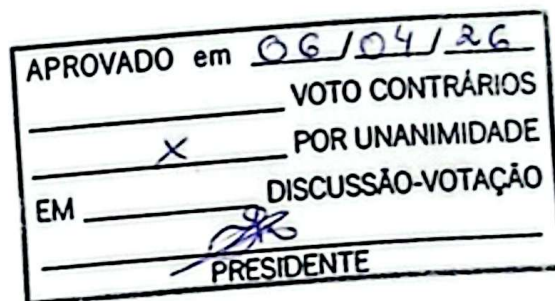 APROVADO em 06/04/26
VOTO CONTRÁRIOS
X POR UNANIMIDADE
EM DISCUSSÃO-VOTAÇÃO
PRESIDENTE